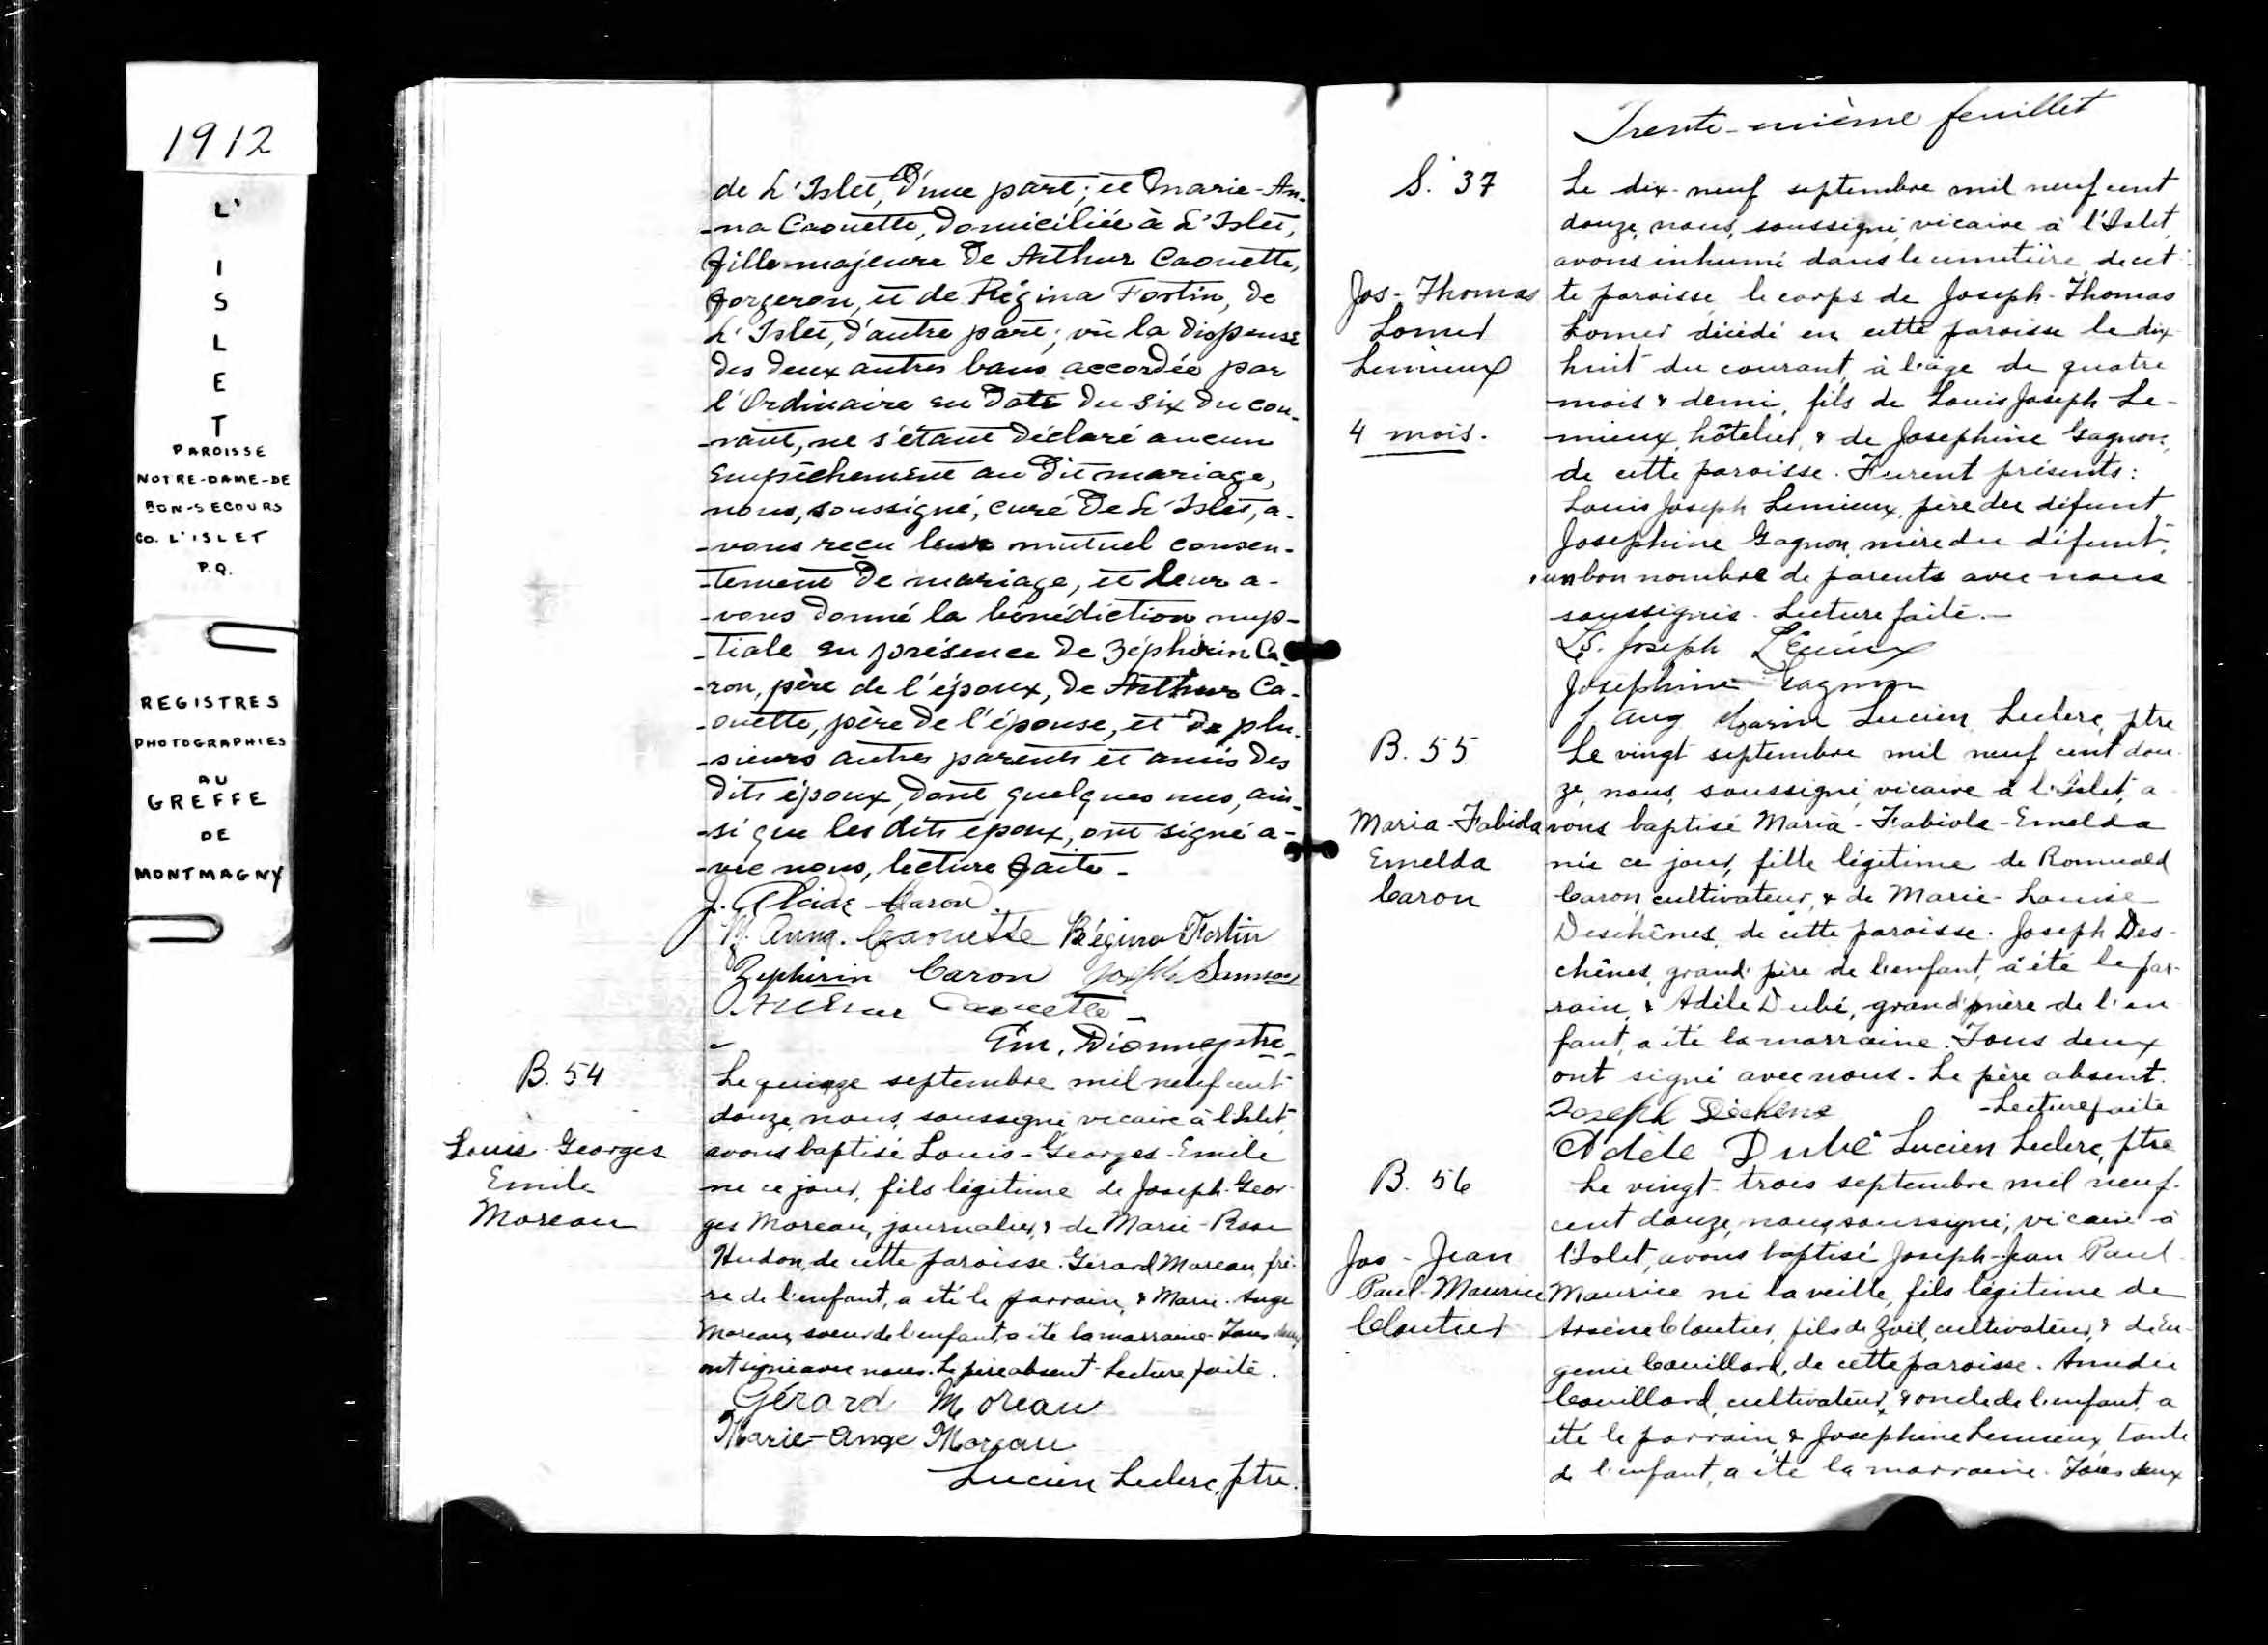 1912
L'
I
S
L
E
T
PAROISSE
NOTRE-DAME-DE
BON-SECOURS
CO. L'ISLET
P.Q.
REGISTRES
PHOTOGRAPHIES
AU
GREFFE
DE
MONTMAGNY
de L'Islet, d'une part; et Marie-An-
-na Caouette, domiciliée à L'Islet,
fille majeure de Arthur Caouette,
forgeron, et de Régina Fortin, de
L'Islet, d'autre part; vû la dispense
des deux autres bans accordée par
l'Ordinaire en date du six du cou-
-rant, ne s'étant déclaré aucun
empêchement au dit mariage,
nous, soussigné, curé de L'Islet, a-
-vons reçu leur mutuel consen-
-tement de mariage, et leur a-
-vons donné la bénédiction nup-
-tiale en présence de Zéphirin Ca-
-ron, père de l'époux, de Arthur Ca-
-ouette, père de l'épouse, et de plu-
-sieurs autres parents et amis des
dits époux, dont quelques uns, ain-
-si que les dits époux, ont signé a-
-vec nous, lecture faite -
J. Alcide Caron.
M. Anna. Caouette Régina Fortin
Zéphirin Caron Joseph Samson
Arthur Caouette -
Em. Dionne ptre -
B. 54
Louis-Georges
Emile
Moreau
Le quinze septembre mil neuf cent
douze, nous, soussigné vicaire à l'Islet
avons baptisé Louis-Georges-Emile
né ce jour, fils légitime de Joseph-Geor-
ges Moreau, journalier, & de Marie-Rose
Hudon, de cette paroisse. Gérard Moreau, frè-
re de l'enfant, a été le parrain, & Marie-Ange
Moreau, soeur de l'enfant, a été la marraine. Tous deux
ont signé avec nous. Le père absent. Lecture faite.
Gérard Moreau
Marie-Ange Moreau
Lucien Leclerc, ptre.
Trente-unième feuillet
S. 37
Jos-Thomas
Lomer
Lemieux
4 mois.
Le dix-neuf septembre mil neuf cent
douze, nous, soussigné, vicaire à l'Islet,
avons inhumé dans le cimetière de cet-
te paroisse, le corps de Joseph-Thomas
Lomer décédé en cette paroisse le dix-
huit du courant, à l'âge de quatre
mois & demi, fils de Louis Joseph Le-
mieux, hôtelier, & de Josephine Gagnon,
de cette paroisse. Furent présents:
Louis Joseph Lemieux, père du défunt,
Josephine Gagnon, mère du défunt,
& un bon nombre de parents avec nous
soussignés. Lecture faite. -
Ls. Joseph Lemieux
Josephine Gagnon
J Aug Lucien Leclerc, ptre
B. 55
Maria-Fabiola
Emelda
Caron
Le vingt septembre mil neuf cent dou-
ze, nous, soussigné, vicaire à l'Islet, a-
vons baptisé Maria-Fabiola-Emelda
née ce jour, fille légitime de Romuald
Caron, cultivateur, & de Marie-Louise
Deschênes, de cette paroisse. Joseph Des-
chênes, grand'père de l'enfant, a été le par-
rain, & Adèle Dubé, grand'mère de l'en
fant, a été la marraine. Tous deux
ont signé avec nous. Le père absent.
Joseph Dechene - Lecture faite
Adèle Dubé Lucien Leclerc, ptre
B. 56
Jos-Jean
Paul-Maurice
Cloutier
Le vingt-trois septembre mil neuf
cent douze, nous soussigné, vicaire à
l'Islet, avons baptisé Joseph-Jean Paul-
Maurice né la veille, fils légitime de
Arsène Cloutier, fils de Zoël, cultivateur, & d'Eu-
genie Couillard, de cette paroisse. Amedée
Couillard, cultivateur, & oncle de l'enfant, a
été le parrain, & Josephine Lemieux, tante
de l'enfant, a été la marraine. Tous deux